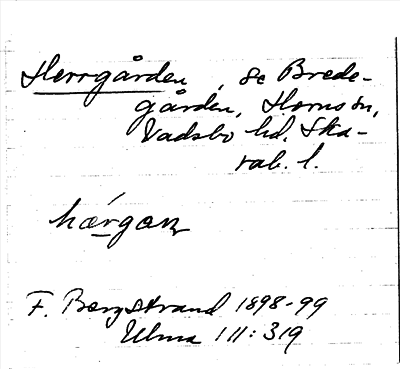 Herrgården, se Brede-
gården, Hornsön,
Vadsbo hd. Ska-
rab. l.
hærgan
F. Bergstrand 1898-99
Ulma 111:319